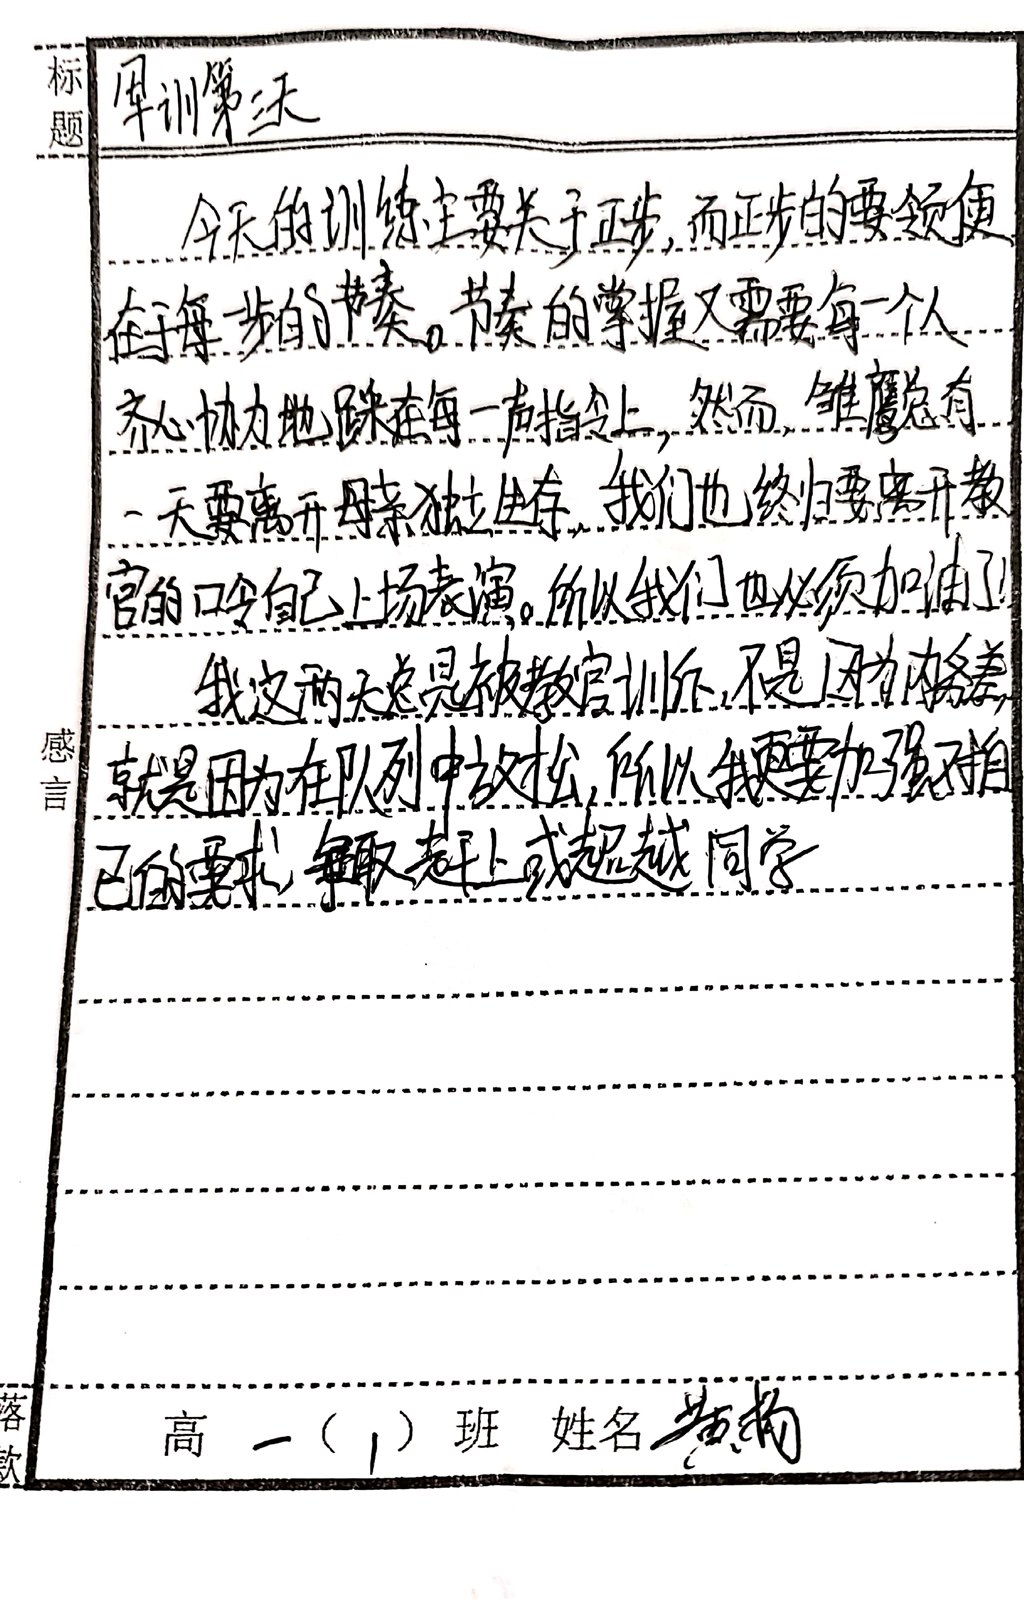 标题
军训第三天
今天的训练主要关于正步,而正步的要领便
在于每一步的节奏。节奏的掌握又需要每一个人
齐心协力地踩在每一声指令上,然而,雏鹰总有
一天要离开母亲独立生存,我们也终归要离开教
官的口令自己上场表演。所以我们也必须加油了!
我这两天总是被教官训斥,不是因为内务差,
就是因为在队列中放松,所以我更要加强对自
己的要求,争取赶上或超越同学
感言
落款
高一(1)班 姓名黄杨